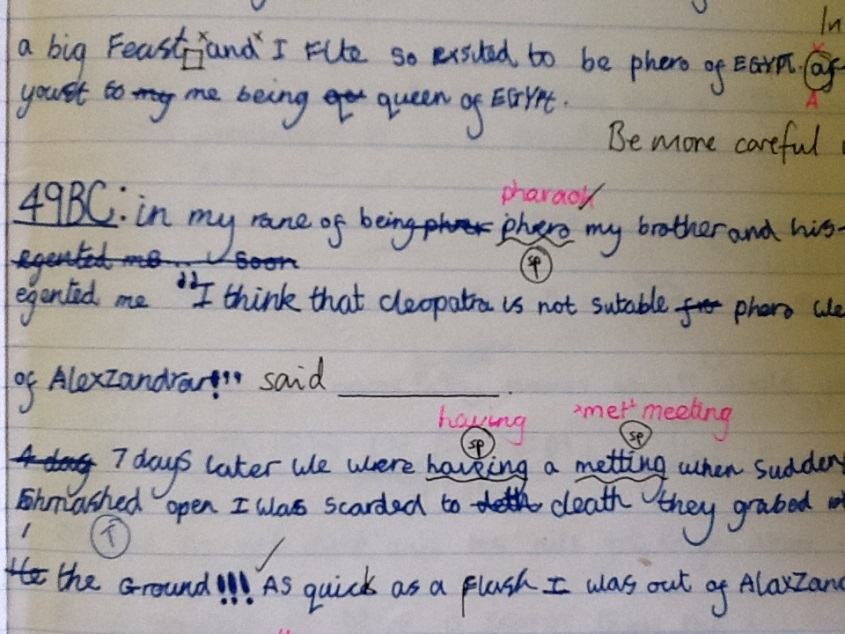 In
a big Feast and I Flte so exsited to be phero of EGYPT. as
youst to my me being queen of EGYPt.
Be more careful
pharaoh
49BC: in my rane of being phero my brother and his
egented me ... Soon
sp
egented me "I think that cleopatra is not sutable for phero we
of Alexzandra!!!" said
having "met" meeting
sp sp
A day 7 days later we were haveing a metting when sudden
Shmashed open I was scarded to deth death they grabed
T
He the Ground!!! As quick as a flash I was out of Alaxzand